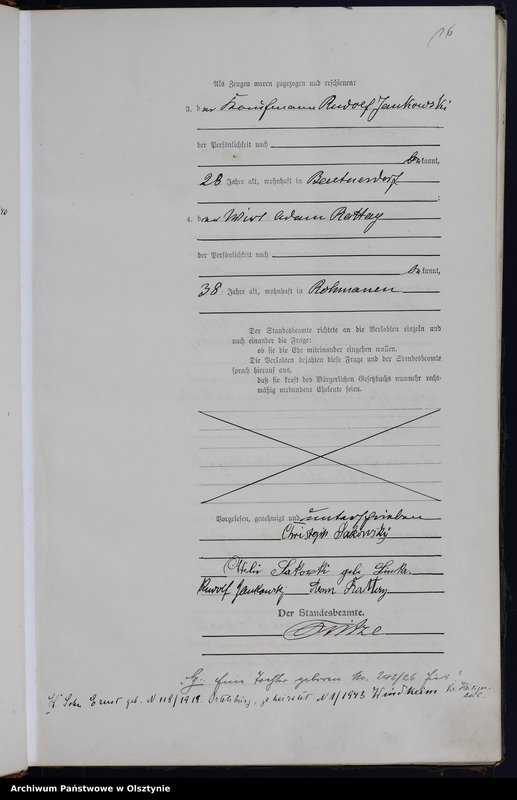 16
Als Zeugen waren zugezogen und erschienen:
3. der Kaufmann Rudolf Jankowski
der Persönlichkeit nach
bekannt,
28 Jahre alt, wohnhaft in Beutnerdorf
;
4. der Wirt Adam Rattay
der Persönlichkeit nach
bekannt,
38 Jahre alt, wohnhaft in Rohmanen
Der Standesbeamte richtete an die Verlobten einzeln und
nach einander die Frage:
ob sie die Ehe miteinander eingehen wollen.
Die Verlobten bejahten diese Frage und der Standesbeamte
sprach hierauf aus,
daß sie kraft des Bürgerlichen Gesetzbuchs nunmehr recht-
mäßig verbundene Eheleute seien.
Vorgelesen, genehmigt und unterschrieben
Christoph Sakowsky
Sakowski geb.
Rudolf Jankowsky Adam Rattay
Der Standesbeamte.
G. Eine Tochter geboren No. 242/26 hier
Sohn Ernst geb. N 118/1919. Ortelsburg, geheiratet N 1/1943 Windkeim Kr. Heiligen-
beil.
Archiwum Państwowe w Olsztynie